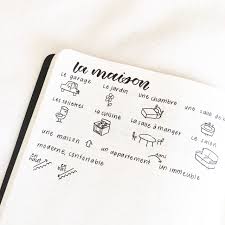 la maison
Le garage Le jardin une chambre une salle de
Les toilettes La cuisine La salle à manger Le salon
une maison un appartement un immeuble
moderne, confortable
en haut en bas